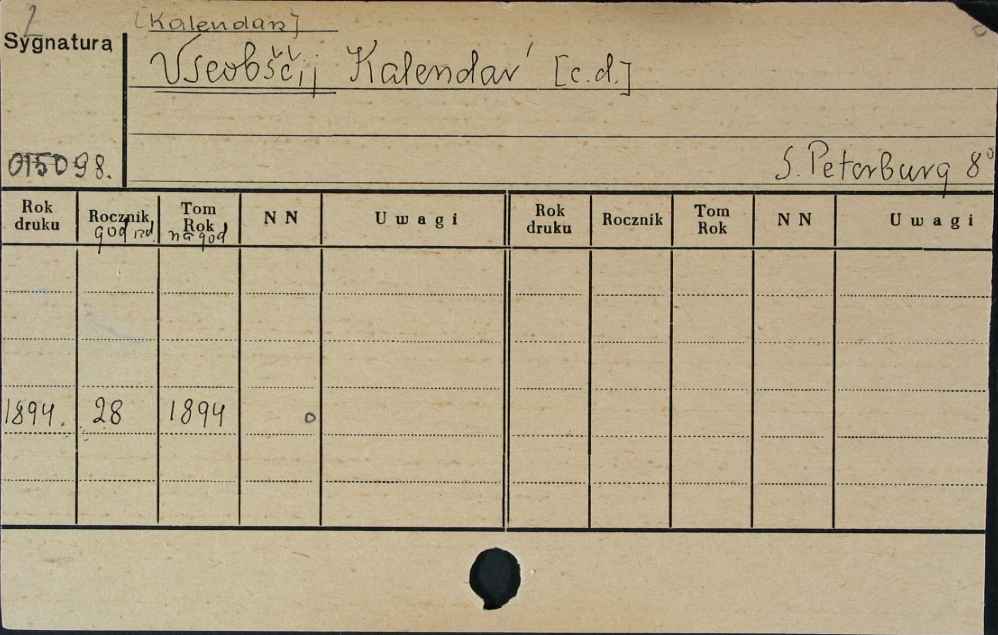 2
[Kalendarz]
Sygnatura
Vseobščij Kalendar' [c.d.]
015098.
S. Peterburg 8°
Rok druku Rocznik god izd Tom Rok na god N N Uwagi Rok druku Rocznik Tom Rok N N Uwagi
1894. 28 1894 o